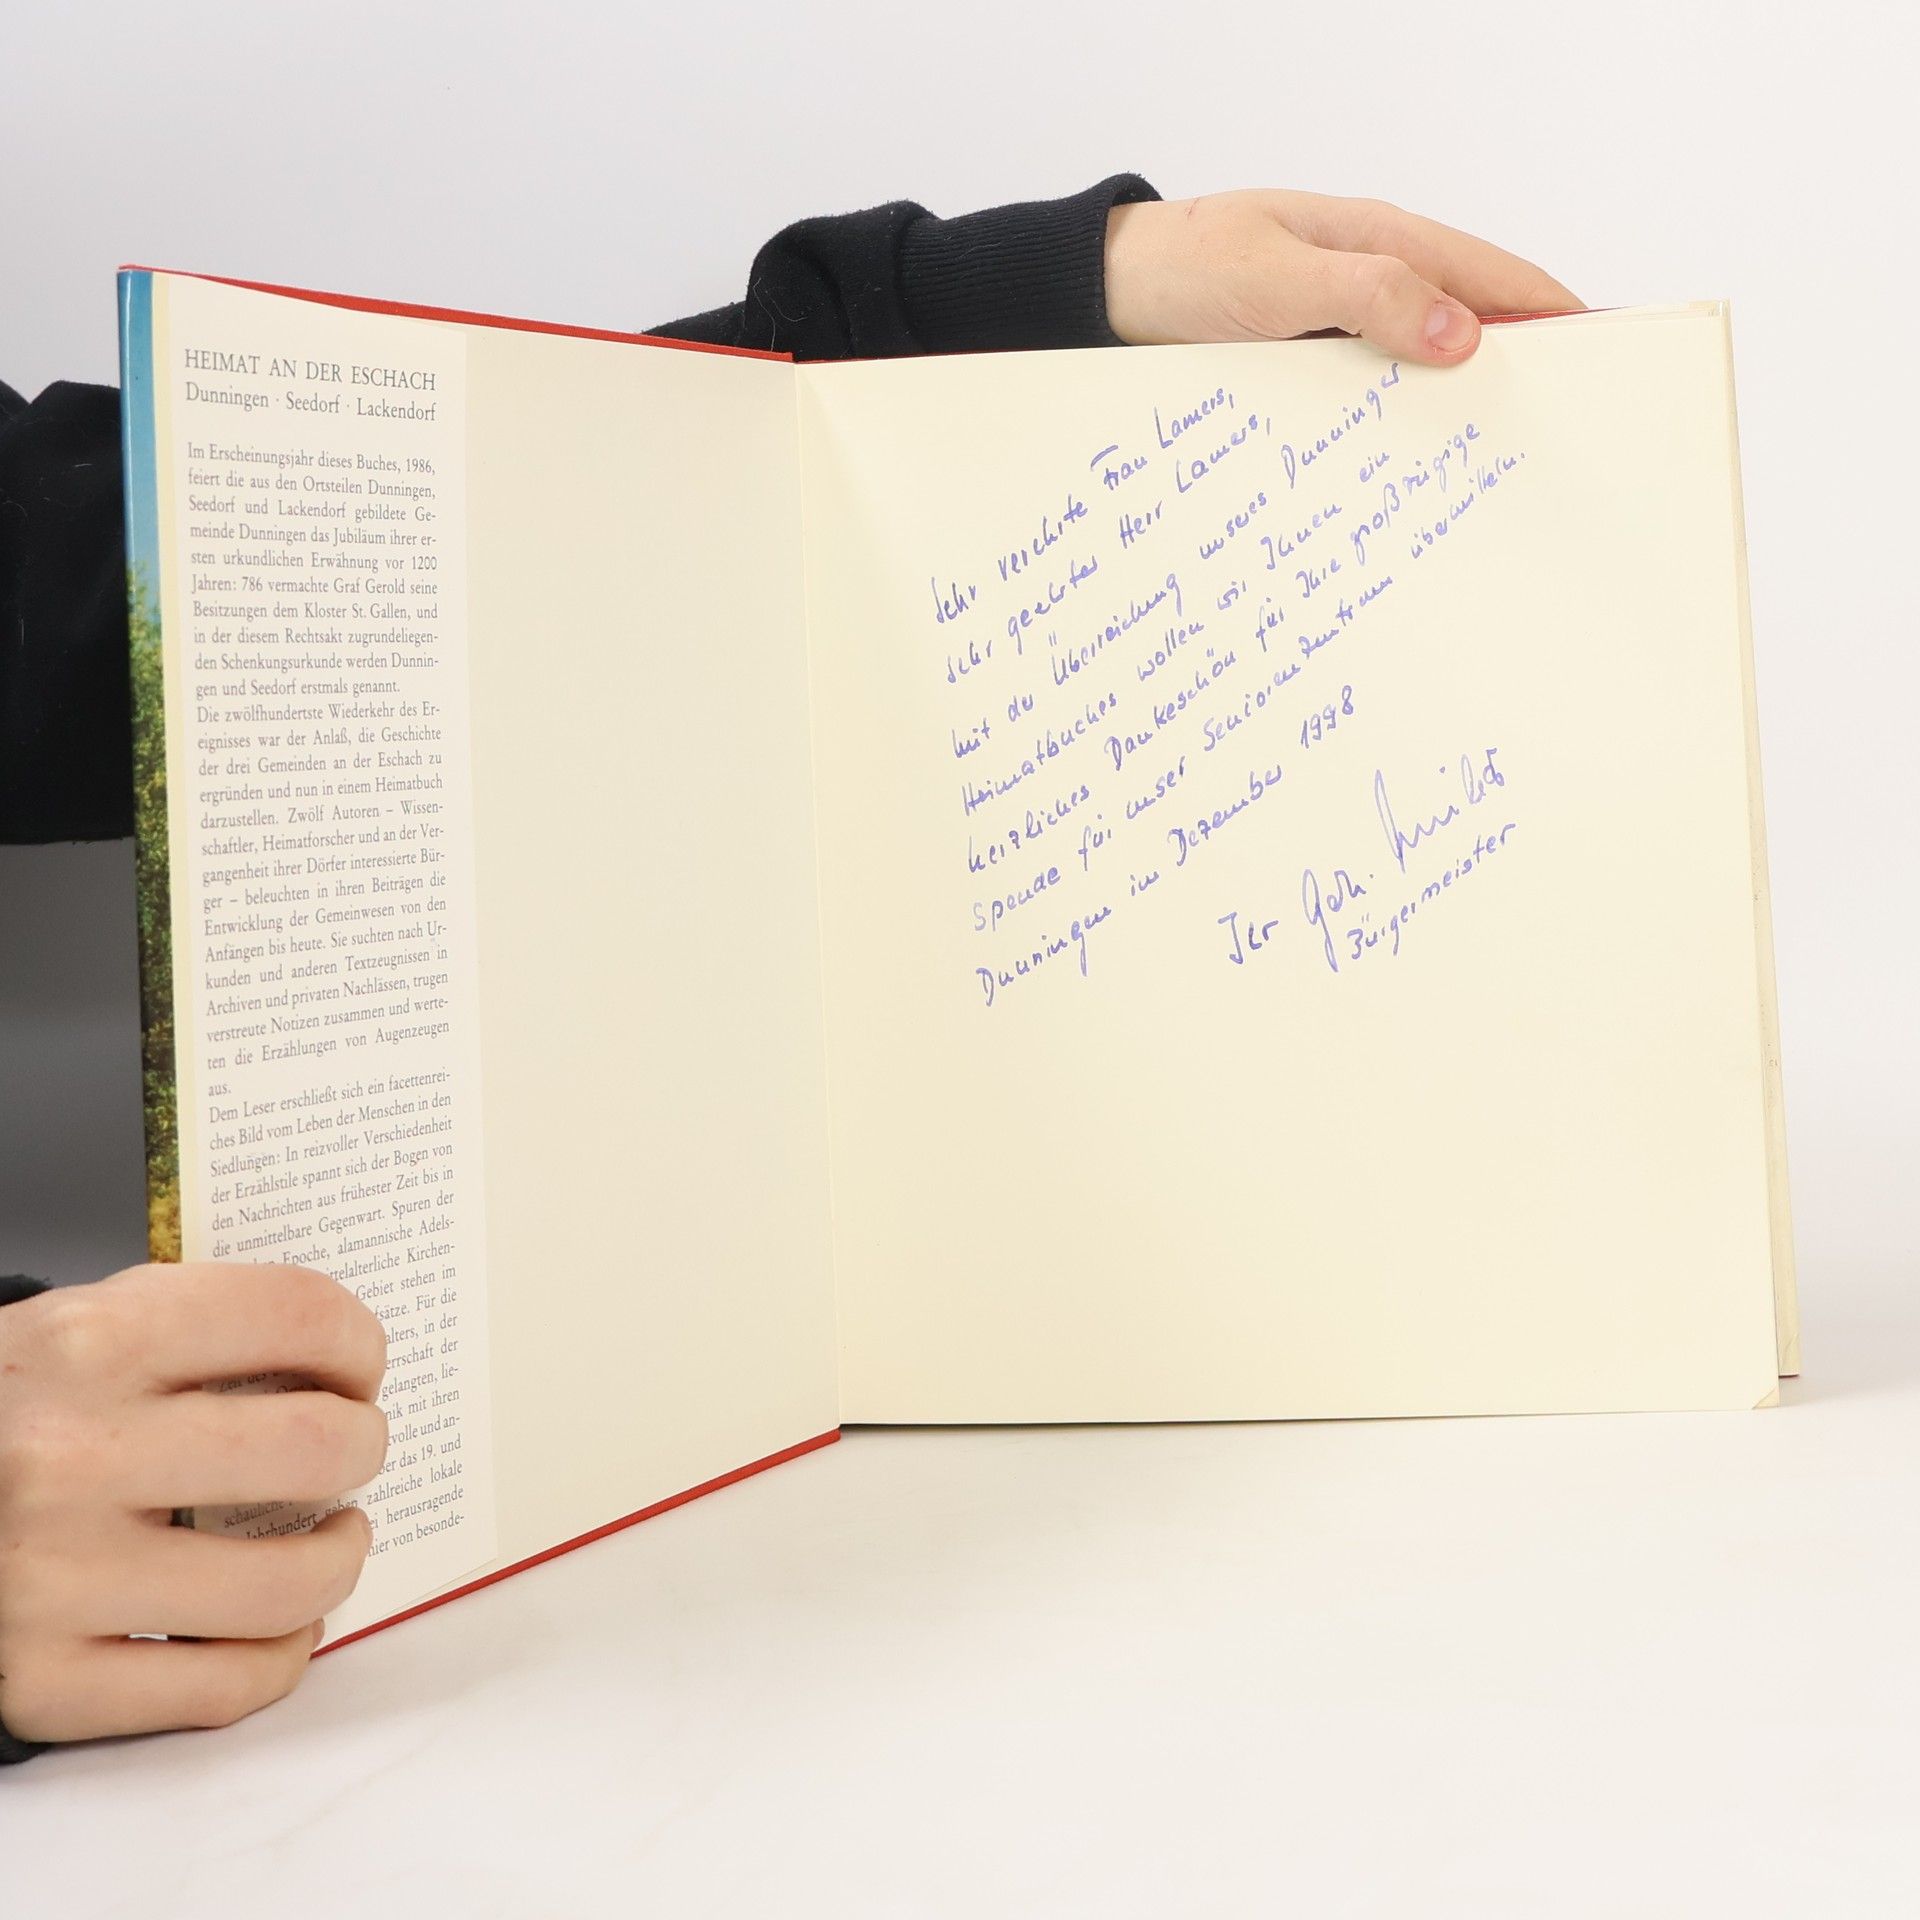 HEIMAT AN DER ESCHACH
Dunningen · Seedorf · Lackendorf
Im Erscheinungsjahr dieses Buches, 1986,
feiert die aus den Ortsteilen Dunningen,
Seedorf und Lackendorf gebildete Ge-
meinde Dunningen das Jubiläum ihrer er-
sten urkundlichen Erwähnung vor 1200
Jahren: 786 vermachte Graf Gerold seine
Besitzungen dem Kloster St. Gallen, und
in der diesem Rechtsakt zugrundeliegen-
den Schenkungsurkunde werden Dunnin-
gen und Seedorf erstmals genannt.
Die zwölfhundertste Wiederkehr des Er-
eignisses war der Anlaß, die Geschichte
der drei Gemeinden an der Eschach zu
ergründen und nun in einem Heimatbuch
darzustellen. Zwölf Autoren – Wissen-
schaftler, Heimatforscher und an der Ver-
gangenheit ihrer Dörfer interessierte Bür-
ger – beleuchten in ihren Beiträgen die
Entwicklung der Gemeinwesen von den
Anfängen bis heute. Sie suchten nach Ur-
kunden und anderen Textzeugnissen in
Archiven und privaten Nachlässen, trugen
verstreute Notizen zusammen und werte-
ten die Erzählungen von Augenzeugen
aus.
Dem Leser erschließt sich ein facettenrei-
ches Bild vom Leben der Menschen in den
Siedlungen: In reizvoller Verschiedenheit
der Erzählstile spannt sich der Bogen von
den Nachrichten aus frühester Zeit bis in
die unmittelbare Gegenwart. Spuren der
Epoche, alamannische Adels-
ittelalterliche Kirchen-
Gebiet stehen im
fsätze. Für die
alters, in der
errschaft der
Zeit des gelangten, lie-
nik mit ihren
volle und an-
ber das 19. und
schauliche zahlreiche lokale
Jahrhundert geben ei herausragende
hier von besonde-
Sehr verehrte Frau Lamers,
sehr geehrter Herr Lamers,
mit der Überreichung unseres Dunninger
Heimatbuches wollen wir Ihnen ein
herzliches Dankeschön für Ihre großzügige
Spende für unser Seniorenzentrum übermitteln.
Dunningen im Dezember 1998
Ihr
Bürgermeister